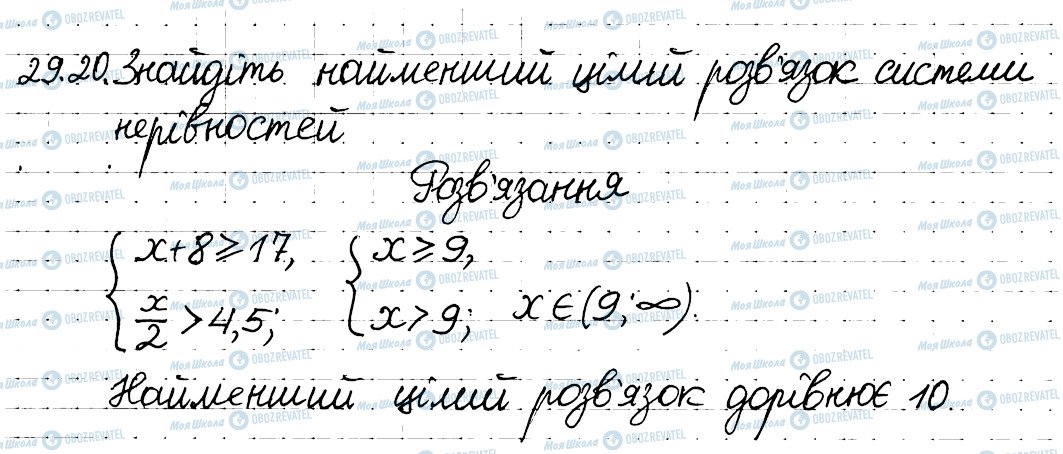 29.20. Знайдіть найменший цілий розв'язок системи
нерівностей
Розв'язання
{ x+8⩾17, { x⩾9,
{ x/2 >4,5; { x>9; x∈(9;∞).
Найменший цілий розв'язок дорівнює 10.